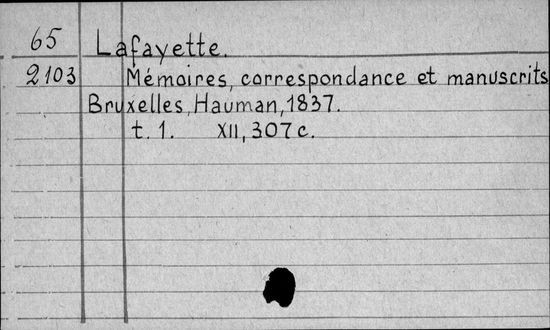 65 Lafayette.
2103 Mémoires, correspondance et manuscrits
Bruxelles, Hauman, 1837.
t. 1. XII, 307 c.